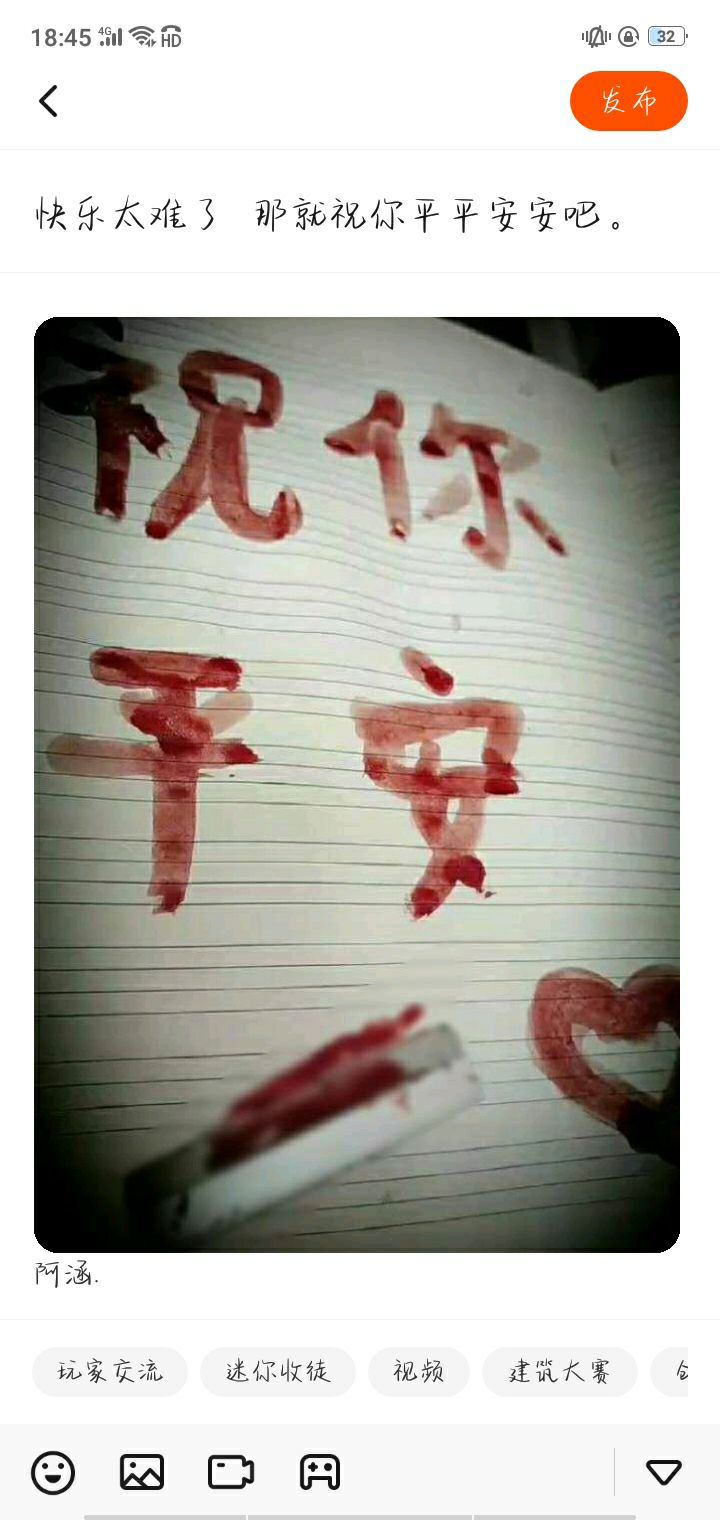 18:45 4G HD 32
发布
快乐太难了 那就祝你平平安安吧。
祝你
平安
阿涵.
玩家交流 迷你收徒 视频 建筑大赛